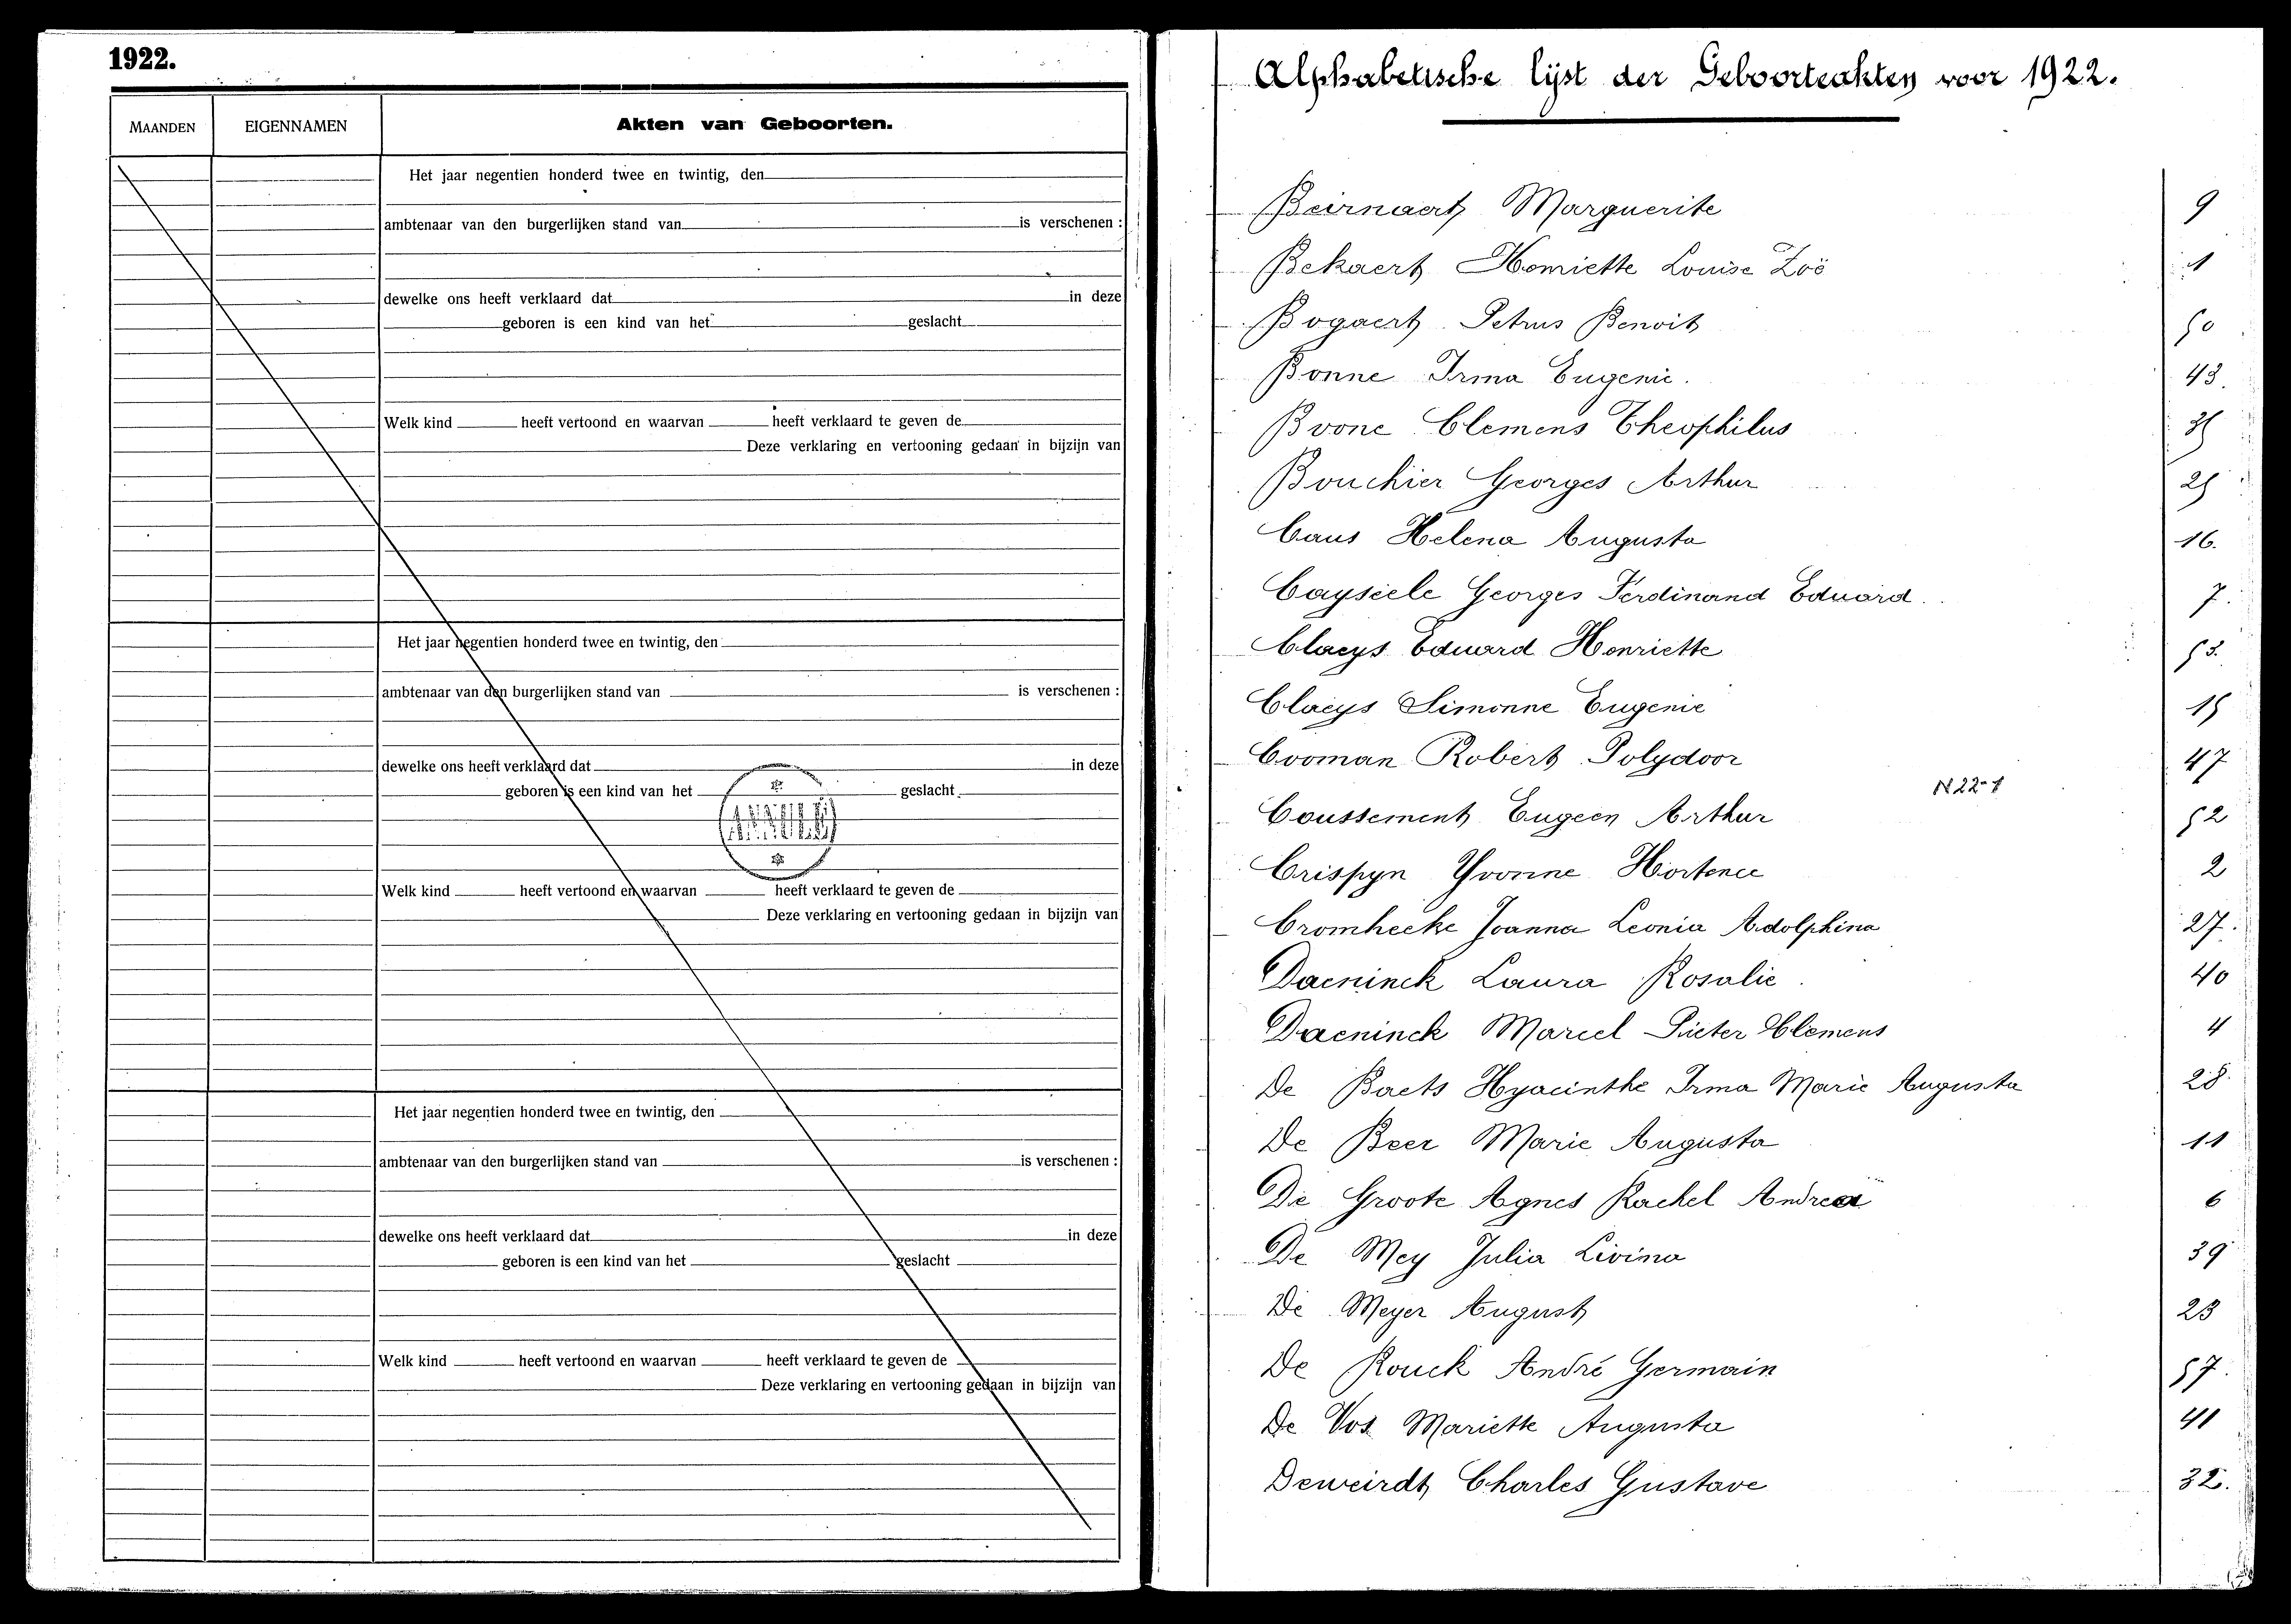 1922.
MAANDEN
EIGENNAMEN
Akten van Geboorten.
Het jaar negentien honderd twee en twintig, den
ambtenaar van den burgerlijken stand van is verschenen :
dewelke ons heeft verklaard dat in deze
geboren is een kind van het geslacht
Welk kind heeft vertoond en waarvan heeft verklaard te geven de
Deze verklaring en vertooning gedaan in bijzijn van
Het jaar negentien honderd twee en twintig, den
ambtenaar van den burgerlijken stand van is verschenen :
dewelke ons heeft verklaard dat in deze
geboren is een kind van het geslacht
Welk kind heeft vertoond en waarvan heeft verklaard te geven de
Deze verklaring en vertooning gedaan in bijzijn van
Het jaar negentien honderd twee en twintig, den
ambtenaar van den burgerlijken stand van is verschenen :
dewelke ons heeft verklaard dat in deze
geboren is een kind van het geslacht
Welk kind heeft vertoond en waarvan heeft verklaard te geven de
Deze verklaring en vertooning gedaan in bijzijn van
Alphabetische lijst der Geboorteakten voor 1922.
Beirnaert Marguerite 9
Bekaert Henriette Louise Zoë 1
Bogaert Petrus Benoit 50
Bonne Irma Eugenie. 43.
Boone Clemens Theophilus 35
Bouchier Georges Arthur 25
Caus Helena Augusta 16.
Cayseele Georges Ferdinand Eduard. 7.
Claeys Eduard Henriette 53.
Claeys Simonne Eugenie 15
Cooman Robert Polydoor 47
N 22-1
Coussement Eugeen Arthur 52
Crispyn Yvonne Hortence 2
Cromheeke Joanna Leonia Adolphina 27.
Daeninck Laura Rosalie 40
Daeninck Marcel Pieter Clemens 4
De Baets Hyacinthe Irma Marie Augusta 28.
De Beer Marie Augusta 11
De Groote Agnes Rachel Andrea 6
De Mey Julia Livina 39
De Meyer August 23
De Rouck André Germain 57.
De Vos Mariette Augusta 41
Deweirdt Charles Gustave 32.